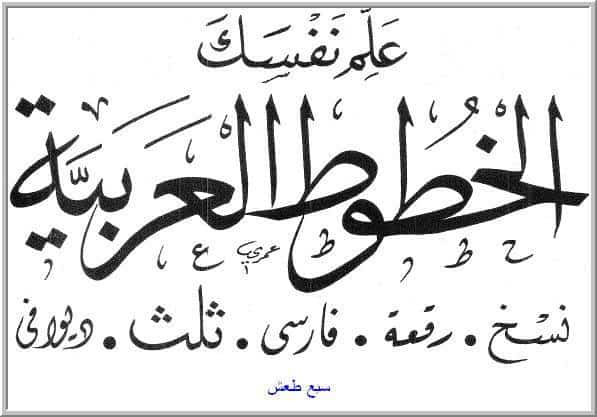 عَلِّم نَفْسِكَ
الخُطُوط العَرَبيَّة
نسْخ . رقعة . فارسى . ثلث . ديوانى
سبع طعش